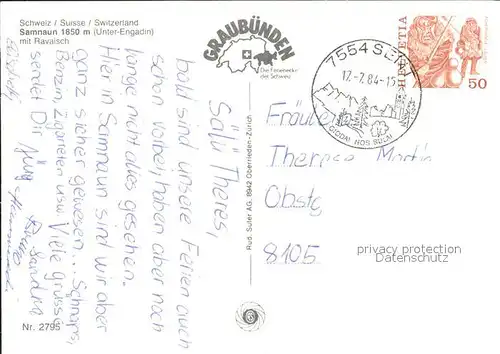 Schweiz / Suisse / Switzerland
Samnaun 1850 m (Unter-Engadin)
mit Ravaisch
GRAUBÜNDEN
Die Ferienecke
der Schweiz
7554 SENT
17.-7. 84-15
CIDDM NOS BUEN
HELVETIA
50
Salü Theres,
bald sind unsere Ferien auch
schon vorbei, haben aber noch
lange nicht alles gesehen.
Hier in Samnaun sind wir aber
ganz sicher gewesen... Schnaps,
Benzin, Zigaretten usw. Viele Grüsse
sendet Dir Jürg
Sandra
Rud. Suter AG, 8942 Oberrieden-Zürich
Fräulein
Therese Martin
Obstg
8105
privacy protection
Datenschutz
Nr. 2795